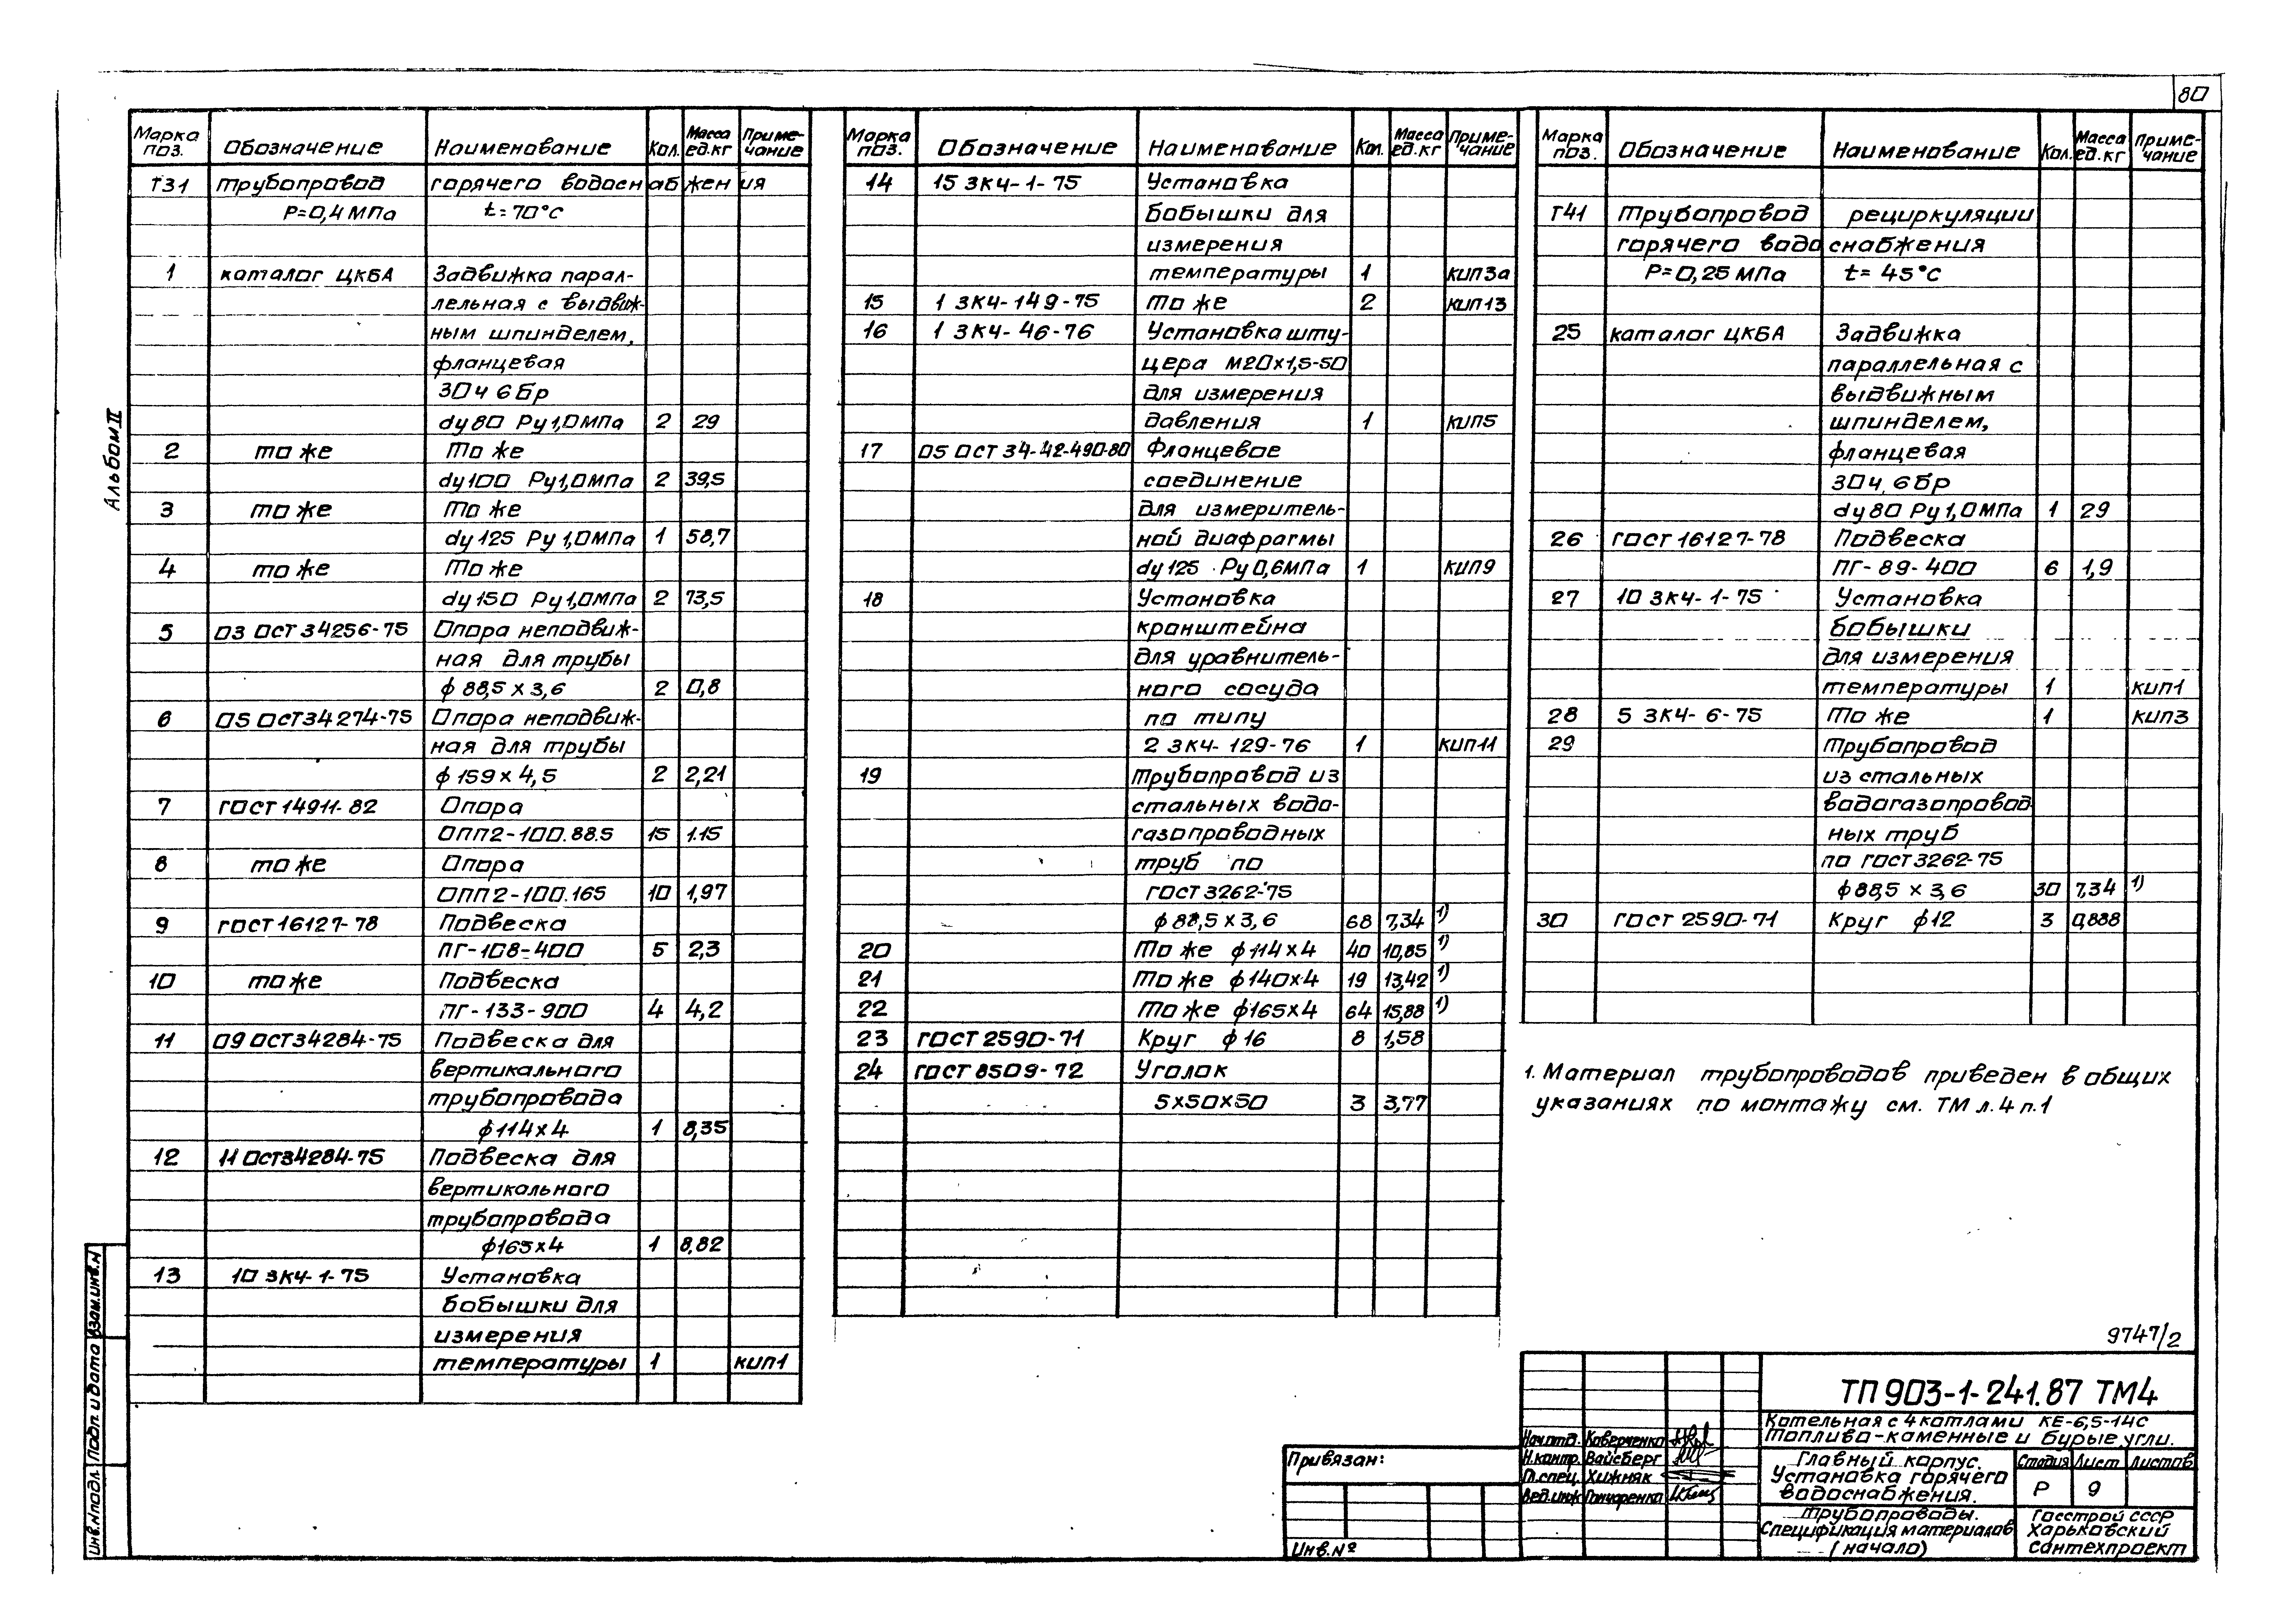 80
Альбом II
Марка поз. Обозначение Наименование Кол. Масса ед.кг Примечание
Т31 Трубопровод горячего водоснабжения
Р=0,4 МПа t=70°С
1 каталог ЦКБА Задвижка парал-
лельная с выдвиж-
ным шпинделем,
фланцевая
30ч 6бр
dу80 Ру1,0МПа 2 29
2 то же То же
dу100 Ру1,0МПа 2 39,5
3 то же То же
dу125 Ру1,0МПа 1 58,7
4 то же То же
dу150 Ру1,0МПа 2 73,5
5 03 ОСТ 34256-75 Опора неподвиж-
ная для трубы
ф 88,5 х 3,6 2 0,8
6 05 ОСТ34274-75 Опора неподвиж-
ная для трубы
ф 159 х 4,5 2 2,21
7 ГОСТ 14911-82 Опора
ОПП2-100.88.5 15 1.15
8 то же Опора
ОПП2-100.165 10 1,97
9 ГОСТ16127-78 Подвеска
ПГ-108-400 5 2,3
10 то же Подвеска
ПГ-133-900 4 4,2
11 09 ОСТ34284-75 Подвеска для
вертикального
трубопровода
ф114х4 1 8,35
12 11 ОСТ34284-75 Подвеска для
вертикального
трубопровода
ф165х4 1 8,82
13 10 ЗКЧ-1-75 Установка
бобышки для
измерения
температуры 1 КИП1
Марка поз. Обозначение Наименование Кол. Масса ед.кг Примечание
14 15 ЗКЧ-1-75 Установка
бобышки для
измерения
температуры 1 КИП3а
15 1 ЗКЧ-149-75 То же 2 КИП13
16 1 ЗКЧ-46-76 Установка шту-
цера М20х1,5-50
для измерения
давления 1 КИП5
17 05 ОСТ 34-42-490-80 Фланцевое
соединение
для измеритель-
ной диафрагмы
dу125 Ру0,6МПа 1 КИП9
18 Установка
кронштейна
для уравнитель-
ного сосуда
по типу
2 ЗКЧ-129-76 1 КИП11
19 Трубопровод из
стальных водо-
газопроводных
труб по
ГОСТ3262-75
ф 88,5 х 3,6 68 7,34 1)
20 То же ф114х4 40 10,85 1)
21 То же ф140х4 19 13,42 1)
22 То же ф165х4 64 15,88 1)
23 ГОСТ2590-71 Круг ф16 8 1,58
24 ГОСТ8509-72 Уголок
5х50х50 3 3,77
Марка поз. Обозначение Наименование Кол. Масса ед.кг Примечание
Т41 Трубопровод рециркуляции
горячего водоснабжения
Р=0,25 МПа t=45°С
25 каталог ЦКБА Задвижка
параллельная с
выдвижным
шпинделем,
фланцевая
30ч.6бр
dу80 Ру1,0МПа 1 29
26 ГОСТ16127-78 Подвеска
ПГ-89-400 6 1,9
27 10 ЗКЧ-1-75 Установка
бобышки
для измерения
температуры 1 КИП1
28 5 ЗКЧ-6-75 То же 1 КИП3
29 Трубопровод
из стальных
водогазопровод-
ных труб
по ГОСТ3262-75
ф 88,5 х 3,6 30 7,34 1)
30 ГОСТ 2590-71 Круг ф12 3 0,888
1. Материал трубопроводов приведен в общих
указаниях по монтажу см. ТМ л.4 п.1
9747/2
ТП 903-1-241.87 ТМ4
Котельная с 4 котлами КЕ-6,5-14С
Топливо-каменные и бурые угли.
Нач.отд. Каверченко
Н.контр. Вайсберг
Гл.спец. Хижняк
Вед.инж. Гончаренко
Главный корпус.
Установка горячего
водоснабжения.
Стадия Лист Листов
Р 9
Трубопроводы.
Спецификация материалов
(начало)
Госстрой СССР
Харьковский
Сантехпроект
Привязан:
Инв.№
Инв.№подл. Подп. и дата Взам.инв.№